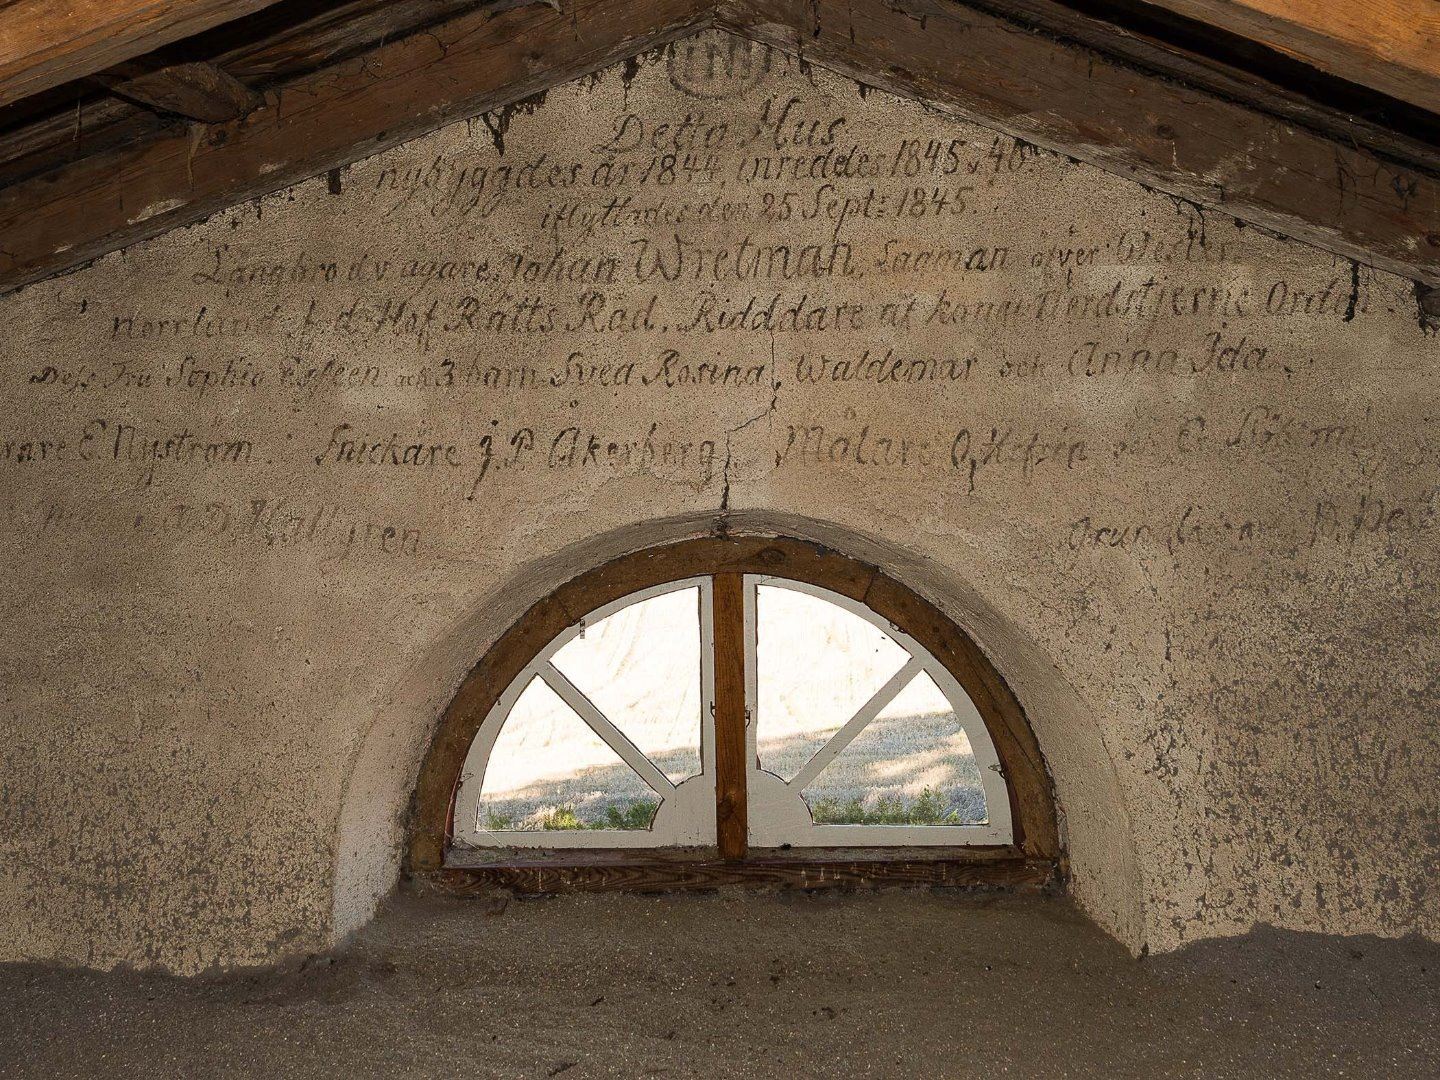 Detta Hus
nybyggdes år 1844, inreddes 1845 o 46.
iflyttades den 25 Sept: 1845.
Långbro d.v. ägare Johan Wretman, Lagman öfver Wester
norrland, f.d. Hof Rätts Råd, Riddare af kongl Nordstjerne Orden.
Dess Fru Sophia och 3 barn Svea Rosina, Waldemar och Anna Ida.
E Nyström. Snickare J. P Åkerberg. Målare O,
Grundläggare P.